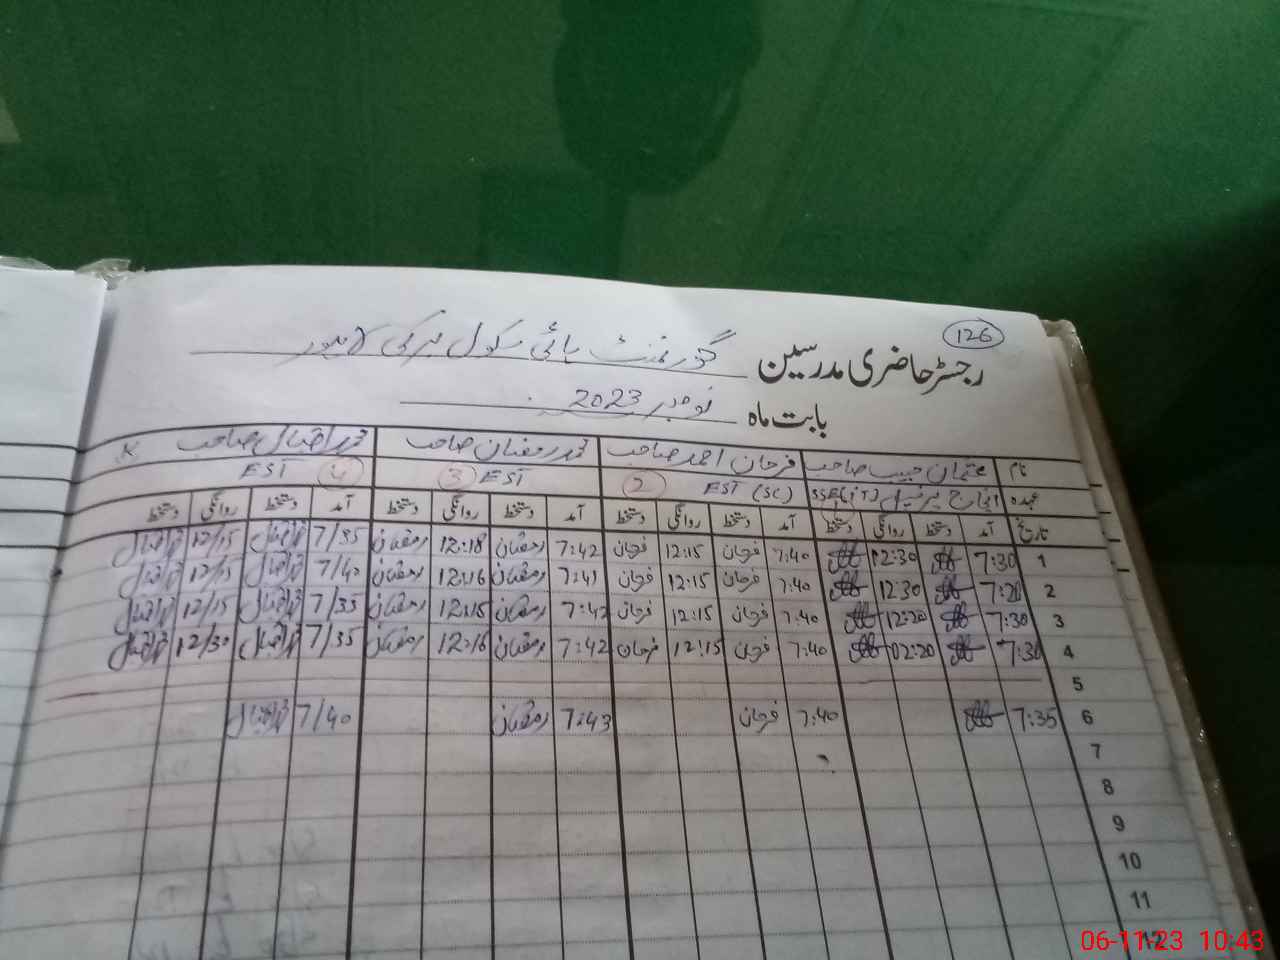 126
رجسٹر حاضری مدرسین گورنمنٹ ہائی سکول برکی لاہور
بابت ماہ نومبر 2023
نام عثمان حبیب صاحب فرحان احمد صاحب محمد رمضان صاحب محمد اقبال صاحب
عہدہ انچارج پرنسپل SSE(IT) EST (SC) 2 EST 3 EST 4
تاریخ آمد دستخط روانگی دستخط آمد دستخط روانگی دستخط آمد دستخط روانگی دستخط آمد دستخط روانگی دستخط
1 7:30 12:30 7:40 فرحان 12:15 فرحان 7:42 رمضان 12:18 رمضان 7/35 محمد اقبال 12/15 محمد اقبال
2 12:30 7:40 فرحان 12:15 فرحان 7:41 رمضان 12:16 رمضان 7/40 محمد اقبال 12/15 محمد اقبال
3 7:30 12:20 7:40 فرحان 12:15 فرحان 7:42 رمضان 12:15 رمضان 7/35 محمد اقبال 12/15 محمد اقبال
4 7:30 02:20 7:40 فرحان 12:15 فرحان 7:42 رمضان 12:16 رمضان 7/35 محمد اقبال 12/30 محمد اقبال
5
6 7:35 7:40 فرحان 7:43 رمضان 7/40 محمد اقبال
7
8
9
10
11
12
06-11-23 10:43